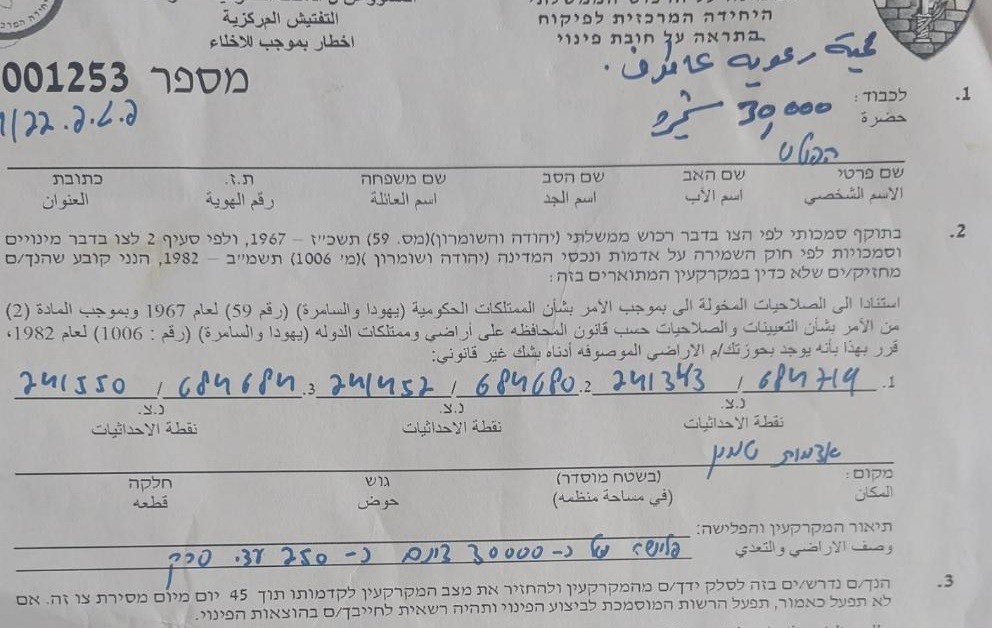 התפتיש המרכזית
التفتيش المركزية
اخطار بموجب للاخلاء
היחידה המרכזית לפיקוח
בתראה על חובת פינוי
מספר 001253
1. לכבוד:
חضרة
30,000
שם פרטי שם האב שם הסב שם משפחה ת.ז. כתובת
الاسم الشخصي اسم الأب اسم الجد اسم العائلة رقم الهوية العنوان
2. בתוקף סמכותי לפי הצו בדבר רכוש ממשלתי (יהודה והשומרון)(מס. 59) תשכ״ז – 1967, ולפי סעיף 2 לצו בדבר מינויים
וסמכויות לפי חוק השמירה על אדמות ונכסי המדינה (יהודה ושומרון )(מ׳ 1006) תשמ״ב – 1982, הנני קובע שהנך/ם
מחזיק/ים שלא כדין במקרקעין המתוארים בזה:
استنادا الى الصلاحيات المخولة الى بموجب الأمر بشأن الممتلكات الحكومية (يهودا والسامرة) (رقم 59) لعام 1967 وبموجب المادة (2)
من الأمر بشأن التعيينات والصلاحيات حسب قانون المحافظه على أراضي وممتلكات الدوله (يهودا والسامرة) (رقم : 1006) لعام 1982،
قرر بهذا بأنه يوجد بحوزتك/م الاراضي الموصوفه أدناه بشك غير قانوني:
1. 684714 / 241343 2. 684680 / 241452 3. 684684 / 241550
נ.צ. נ.צ. נ.צ.
نقطة الاحداثيات نقطة الاحداثيات نقطة الاحداثيات
אדמות טמון
מקום: (בשטח מוסדר) גוש חלקה
المكان (في مساحة منظمه) حوض قطعه
תיאור המקרקעין והפלישה:
وصف الاراضي والتعدي
פלישה של כ- 30000 דונם כ- 250 עצי סרק
3. הנך/ם נדרש/ים בזה לסלק ידך/ם מהמקרקעין ולהחזיר את מצב המקרקעין לקדמותו תוך 45 יום מיום מסירת צו זה. אם
לא תפעל כאמור, תפעל הרשות המוסמכת לביצוע הפינוי ותהיה רשאית לחייבך/ם בהוצאות הפינוי.